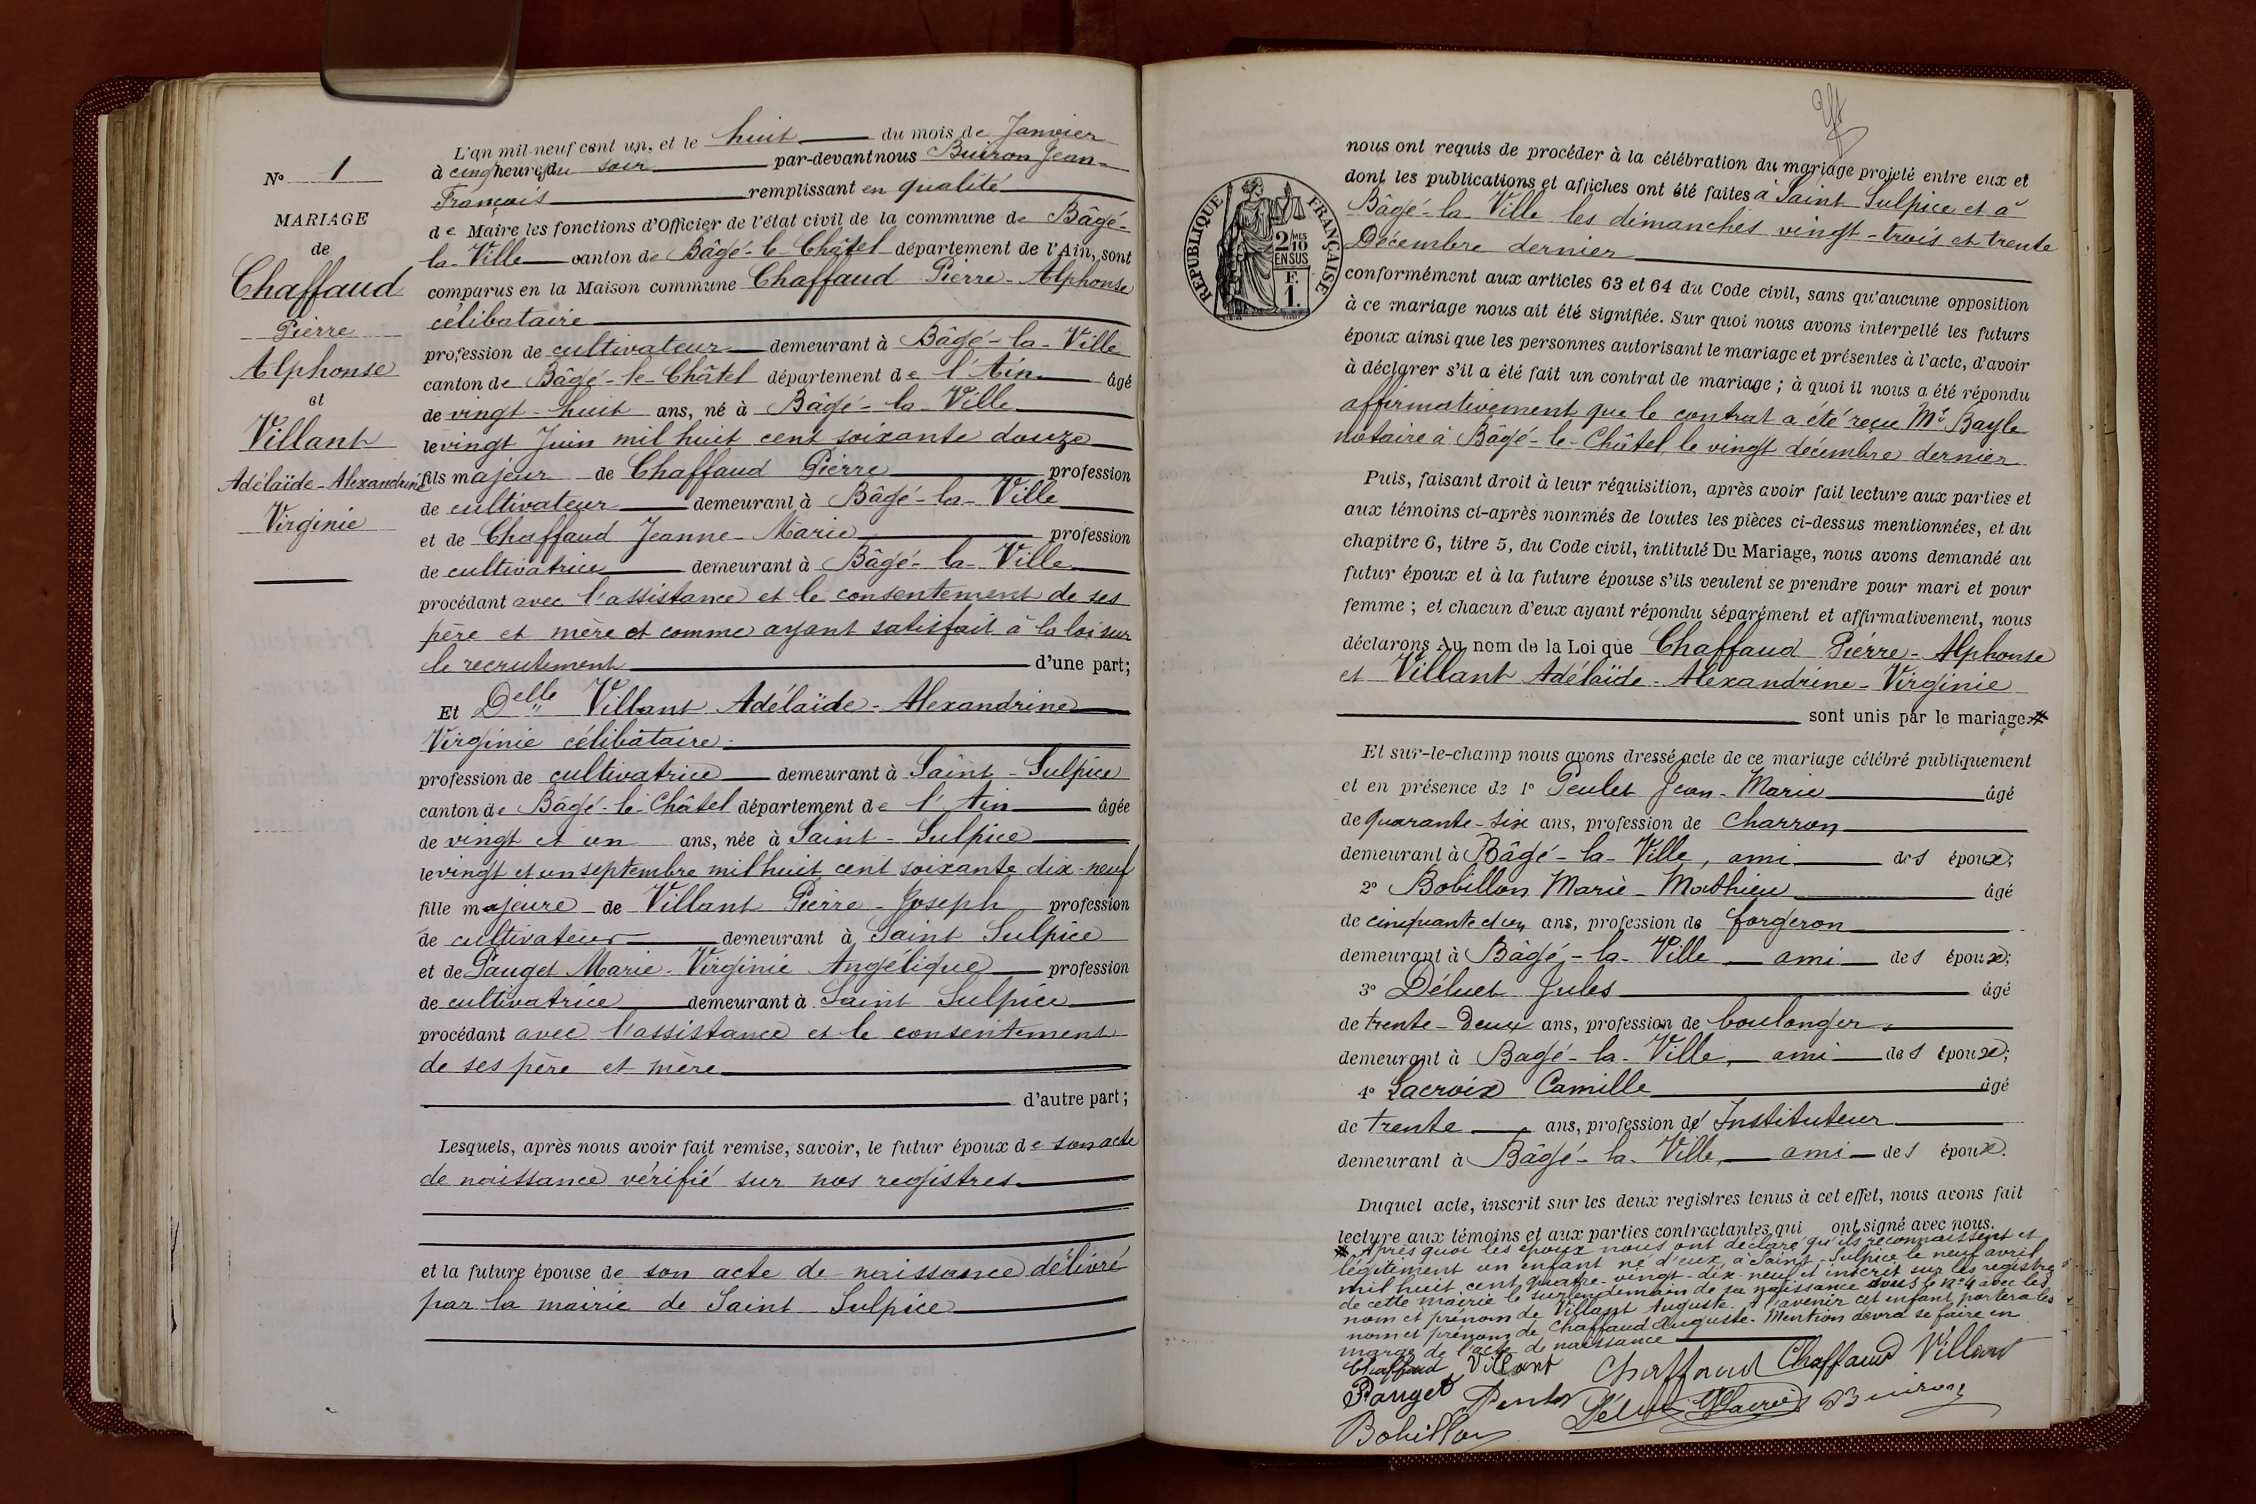 L'an mil neuf cent un, et le huit du mois de Janvier
à cinq heures du soir par-devant nous Buiron Jean-
François remplissant en qualité
de Maire les fonctions d'Officier de l'état civil de la commune de Bâgé-
la-Ville canton de Bâgé-le-Châtel département de l'Ain, sont
comparus en la Maison commune Chaffaud Pierre-Alphonse
célibataire
profession de cultivateur demeurant à Bâgé-la-Ville
canton de Bâgé-le-Châtel département de l'Ain âgé
de vingt-huit ans, né à Bâgé-la-Ville
le vingt Juin mil huit cent soixante douze
fils majeur de Chaffaud Pierre profession
de cultivateur demeurant à Bâgé-la-Ville
et de Chaffaud Jeanne-Marie profession
de cultivatrice demeurant à Bâgé-la-Ville
procédant avec l'assistance et le consentement de ses
père et mère et comme ayant satisfait à la loi sur
le recrutement d'une part;
Et Delle Villant Adélaïde-Alexandrine
Virginie célibataire
profession de cultivatrice demeurant à Saint-Sulpice
canton de Bâgé-le-Châtel département de l'Ain âgée
de vingt et un ans, née à Saint-Sulpice
le vingt et un septembre mil huit cent soixante dix-neuf
fille majeure de Villant Pierre-Joseph profession
de cultivateur demeurant à Saint Sulpice
et de Pauget Marie-Virginie Angélique profession
de cultivatrice demeurant à Saint Sulpice
procédant avec l'assistance et le consentement
de ses père et mère
d'autre part;
Lesquels, après nous avoir fait remise, savoir, le futur époux de son acte
de naissance vérifié sur nos registres
et la future épouse de son acte de naissance délivré
par la mairie de Saint Sulpice
No 1
MARIAGE
de
Chaffaud
Pierre
Alphonse
et
Villant
Adélaïde-Alexandrine
Virginie
nous ont requis de procéder à la célébration du mariage projeté entre eux et
dont les publications et affiches ont été faites à Saint Sulpice et à
Bâgé-la Ville les dimanches vingt-trois et trente
Décembre dernier
conformément aux articles 63 et 64 du Code civil, sans qu'aucune opposition
à ce mariage nous ait été signifiée. Sur quoi nous avons interpellé les futurs
époux ainsi que les personnes autorisant le mariage et présentes à l'acte, d'avoir
à déclarer s'il a été fait un contrat de mariage; à quoi il nous a été répondu
affirmativement que le contrat a été reçu Me Bayle
notaire à Bâgé-le-Châtel le vingt décembre dernier
Puis, faisant droit à leur réquisition, après avoir fait lecture aux parties et
aux témoins ci-après nommés de toutes les pièces ci-dessus mentionnées, et du
chapitre 6, titre 5, du Code civil, intitulé Du Mariage, nous avons demandé au
futur époux et à la future épouse s'ils veulent se prendre pour mari et pour
femme; et chacun d'eux ayant répondu séparément et affirmativement, nous
déclarons Au nom de la Loi que Chaffaud Pierre-Alphonse
et Villant Adélaïde-Alexandrine-Virginie
sont unis par le mariage #
Et sur-le-champ nous avons dressé acte de ce mariage célébré publiquement
et en présence de 1° Peulet Jean-Marie âgé
de quarante-six ans, profession de Charron
demeurant à Bâgé-la-Ville, ami des époux;
2° Bobillon Marie-Mathieu âgé
de cinquante et un ans, profession de forgeron
demeurant à Bâgé-la-Ville ami des époux;
3° Déluet Jules âgé
de trente-deux ans, profession de boulanger
demeurant à Bagé-la-Ville, ami des époux;
4° Lacroix Camille âgé
de trente ans, profession de Instituteur
demeurant à Bâgé-la-Ville, ami des époux.
Duquel acte, inscrit sur les deux registres tenus à cet effet, nous avons fait
lecture aux témoins et aux parties contractantes qui ont signé avec nous.
# Après quoi les époux nous ont déclaré qu'ils reconnaissent et
légitiment un enfant né d'eux à Saint-Sulpice le neuf avril
mil huit cent quatre-vingt-dix-neuf et inscrit sur les registres
de cette mairie le surlendemain de sa naissance sous le n° 4 avec les
nom et prénom de Villant Auguste. A l'avenir cet enfant portera les
nom et prénom de Chaffaud Auguste. Mention devra se faire en
marge de l'acte de naissance
Chaffaud Villant Chaffaud Chaffaud Villant
Pauget Peulet Déluet Lacroix Buiron
Bobillon
RÉPUBLIQUE FRANÇAISE
2/10MES
EN SUS
F.
1.